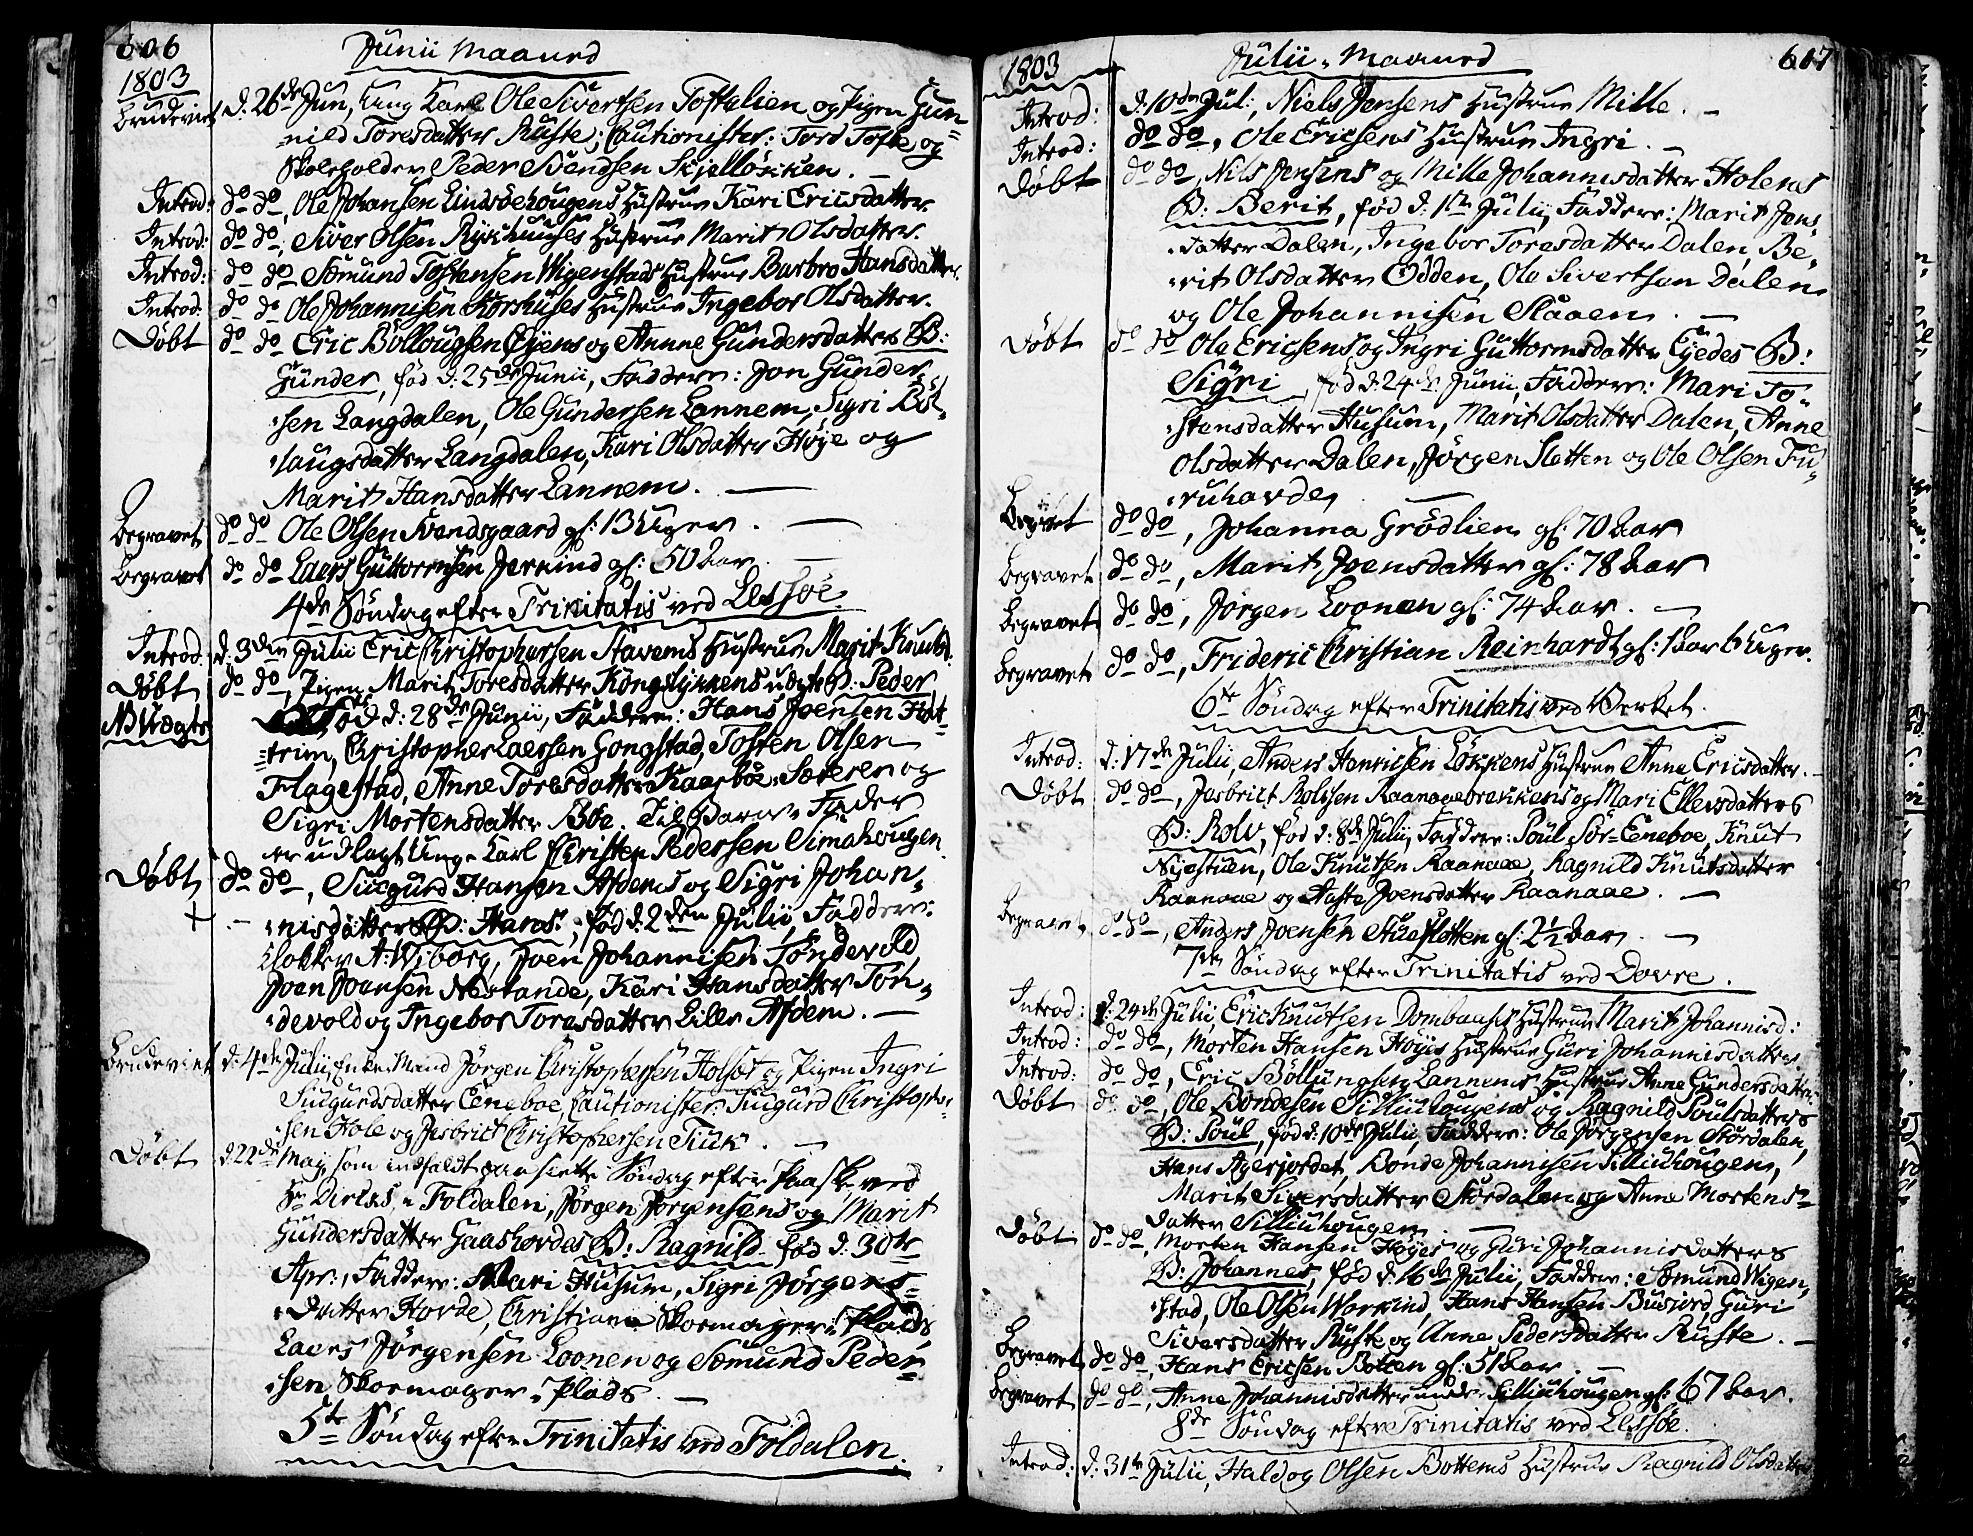 606
Junii Maaned
1803
Brudeviet d: 26de Jun, ung Karl Ole Sivertsen Toftalien og Pigen Gun=
=nild Toresdatter Ruste; Cautionister: Tord Tofte og
Skoleholder Peder Svendsen Skjelløkken. —
Introd: do do, Ole Johansen Lindsøehougens Hustrue Kari Ericsdatter.
Introd: do do, Siver Olsen Rykhuuses Hustrue Marit Olsdatter.
Introd: do do Sømund Tostensen Wigenstads Hustrue Barbro Hansdatter.
Introd: do do Ole Johannisen Korshuses Hustrue Ingebor Olsdatter.
Døbt do do Eric Bøllougsen Øyens og Annne Gundersdatters B:
Gunder, fød d: 25de Junii, Faddere: Jon Gunder,
,sen Langdalen, Ole Gundersen Lannem, Sigri Bøl,
,lougsdatter Langdalen, Kari Olsdatter Høje og
Marit Hansdatter Lannem. —
Begravet do do Ole Olsen Svendsgaard gl: 13 Uger. —
Begravet do do Laers Guttormsen Jerkind gl: 50 Aar. —
4de Søndag efter Trinitatis ved Lessøe.
Introd. d. 3den Julii Eric Christophersen Stavems Hustrue Marit Knutsd.
Døbt do do, Pigen Marit Toresdatter Kongslykkens uægte B: Peder
NB Uægte fød d: 28de Junii, Faddere: Hans Joensen Hat=
=trim, Christopher Laersen Gongstad, Tosten Olsen
Flagestad, Anne Toresdatter Kaarbøe Sæteren og
Sigri Mortensdatter Bøe. Til Barne Fader
er udlagt Unge Karl Christen Pedersen Simahougen.
Døbt do do, Siugurd Hansen Afdems og Sigri Johan,
,nisdatters B: Hans, fød d: 2den Julii, Faddere:
Klokker A: Wiborg, Joen Johannisen Tøndevold,
Joen Joensen Nestande, Kari Hansdatter Tøn,
,devold og Ingebor Toresdatter Lille Afdem. —
Brudeviet d: 4de Julii, Enke Mand Jørgen Christophersen Holset og Pigen Ingri
Siugurdsdatter Eeneboe, Cautionister: Siugurd Christopher,
,sen Hole og Jesbrict Christophersen Tiuk. —
Døbt d: 22de Maij, som indfaldt paa siette Søndag efter Paaske ved
i Foldalen, Jørgen Jørgensens og Marit
Gundersdatter Gaashovdes B: Ragnild fød d: 30te
Apr:, Faddere: Mari Husum, Sigri Jørgens=
=datter Hovde, Christiane Skoemager=Plads
Laers Jørgensen Loonen og Sømund Peder=
,sen Skoemager=Plads. —
5te Søndag efter Trinitatis ved Foldalen.
1803
Julii Maaned
607
Introd: d: 10de Jul:, Niels Jensens Hustrue Mille. —
Introd: do do, Ole Ericsens Hustrue Ingri. —
Døbt do do, Nils Jensens og Mille Johannisdatter Holens
B: Berit, fød d: 1ste Julii, Faddere: Marit Jons,
,datter Dalen, Ingebor Toresdatter Dalen, Be,
,rit Olsdatter Odden, Ole Sivertsen Dalen
og Ole Johannisen Slaaen. —
Døbt do do Ole Ericsens og Ingri Guttormsdatter Eyedes B:
Sigri, fød d: 24de Junii, Faddere: Mari To=
,stensdatter Husum, Marit Olsdatter Dalen, Anne
Olsdatter Dalen, Jørgen Sletten og Ole Olsen Fu,
,ruhovde,
Begravet do do, Johanna Grødlien gl: 70 Aar
Begravet do do, Marit Joensdatter gl: 78 Aar
Begravet do do, Jørgen Loonen gl: 74 Aar. —
Begravet do do, Frideric Christian Reinhardt gl: 1 Aar 6 Uger.
6te Søndag efter Trinitatis ved Verket.
Introd: d: 17de Julii, Anders Henricsen Løkkens Hustrue Anne Ericsdatter.
Døbt do do, Jesbrict Rolvsen Raanaaebrekkens og Mari Ellersdatters
B: Rolv, fød d: 8de Julii, Faddere: Poul Sør-Eneboe, Knut
Nijestuen, Ole Knutsen Raanaae, Ragnild Knutsdatter
Raanaae og Aaste Joensdatter Raanaae. —
Begravet do do, Anders Joensen Stueflotten gl: 2½ Aar. —
7de Søndag efter Trinitatis ved Dovre.
Introd: d: 24de Julii, Eric Knutsen Dombaases Hustrue Marit Johannisd:
Introd: do do, Morten Hansen Høyes Hustrue Guri Johannisdatter,
Introd: do do, Eric Bøllungsen Lannems Hustrue Anne Gundersdatter,
Døbt do do, Ole Bondesen Silliuhougens og Ragnild Poulsdatters
B: Poul, fød d: 10de Julii, Faddere: Ole Jørgensen Stordalen,
Hans Agerjordet, Bonde Johannisen Silliuhougen,
Marit Siversdatter Stordalen og Anne Mortens=
datter Silliuhougen. —
Døbt do do, Morten Hansen Høyes og Guri Johannisdatters
B: Johannes, fød d: 16de Julii, Faddere: Sømund Wigen,
,stad, Ole Olsen Workind, Hans Hansen Busjord, Guri
Siversdatter Ruste og Anne Pedersdatter Ruste. —
Begravet do do, Hans Ericsen Botten gl: 51 Aar. —
Begravet do do, Anne Johannisdatter Silliuhougen gl: 67 Aar.
8de Søndag efter Trinitatis ved Lessøe.
Introd: d: 31te Julii, Haldog Olsen Bottems Hustrue Ragnild Olsdatter